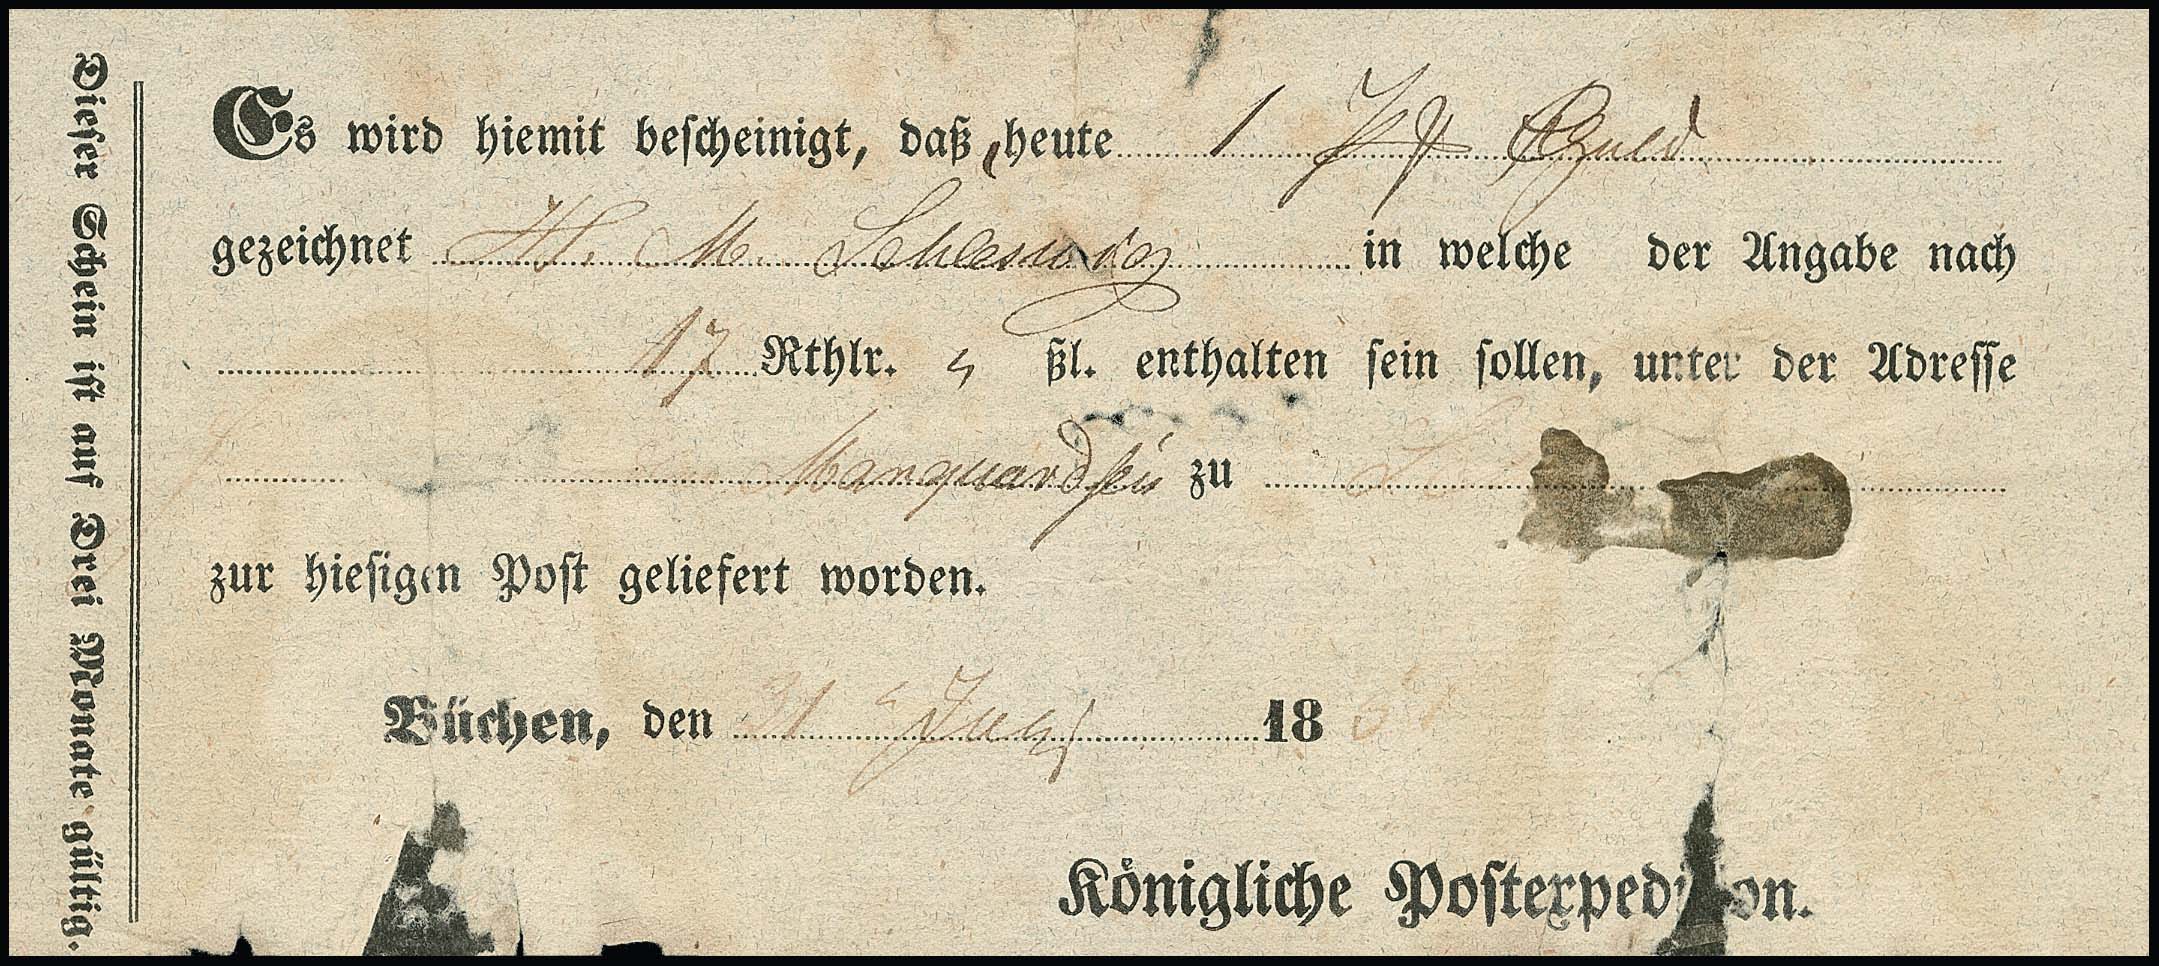 Dieser Schein ist auf Drei Monate gültig.
Es wird hiemit bescheinigt, daß heute 1
gezeichnet H. M. Schleswig in welche der Angabe nach
17 Rthlr. ßl. enthalten sein sollen, unter der Adresse
Marquardsen zu
zur hiesigen Post geliefert worden.
Büchen, den 21 July 18
Königliche Postexpedition.